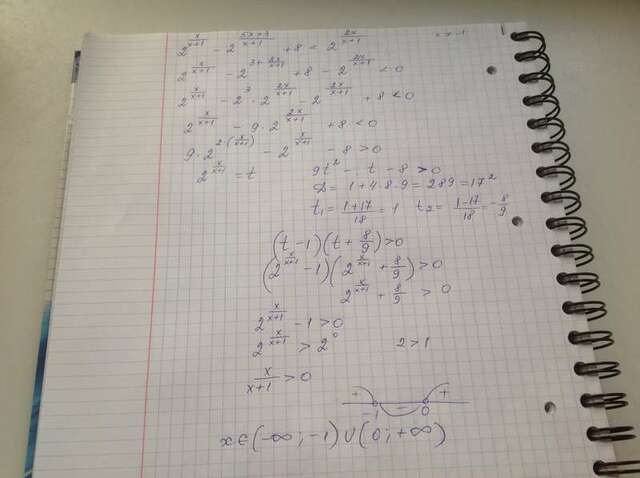 2^(x/(x+1)) - 2^((5x+3)/(x+1)) + 8 < 2^(2x/(x+1)) x ≠ -1
2^(x/(x+1)) - 2^(3 + 2x/(x+1)) + 8 - 2^(2x/(x+1)) < 0
2^(x/(x+1)) - 2^3 · 2^(2x/(x+1)) - 2^(2x/(x+1)) + 8 < 0
2^(x/(x+1)) - 9 · 2^(2x/(x+1)) + 8 < 0
9 · 2^(2(x/(x+1))) - 2^(x/(x+1)) - 8 > 0
2^(x/(x+1)) = t 9t² - t - 8 > 0
D = 1 + 4·8·9 = 289 = 17²
t₁ = (1+17)/18 = 1 t₂ = (1-17)/18 = -8/9
(t - 1)(t + 8/9) > 0
(2^(x/(x+1)) - 1)(2^(x/(x+1)) + 8/9) > 0
2^(x/(x+1)) + 8/9 > 0
2^(x/(x+1)) - 1 > 0
2^(x/(x+1)) > 2^0 2 > 1
x/(x+1) > 0
+ - +
-1 0
x ∈ (-∞; -1) ∪ (0; +∞)